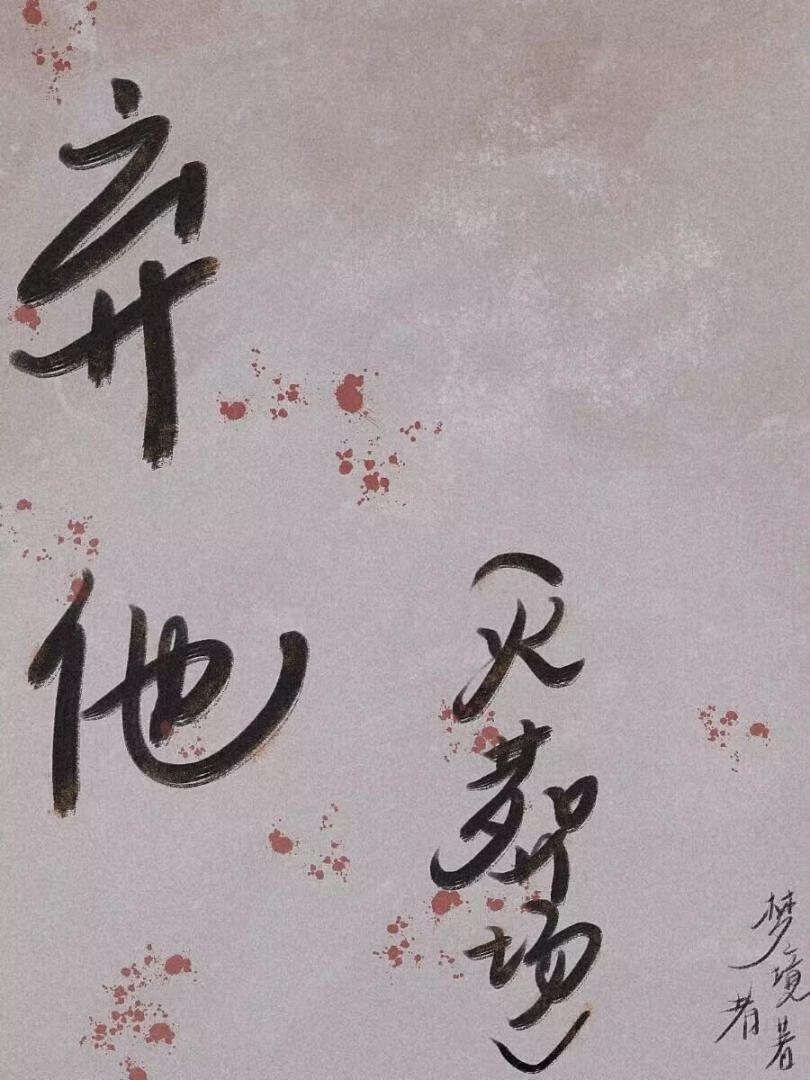 弃他
（火葬场）
梦境者著